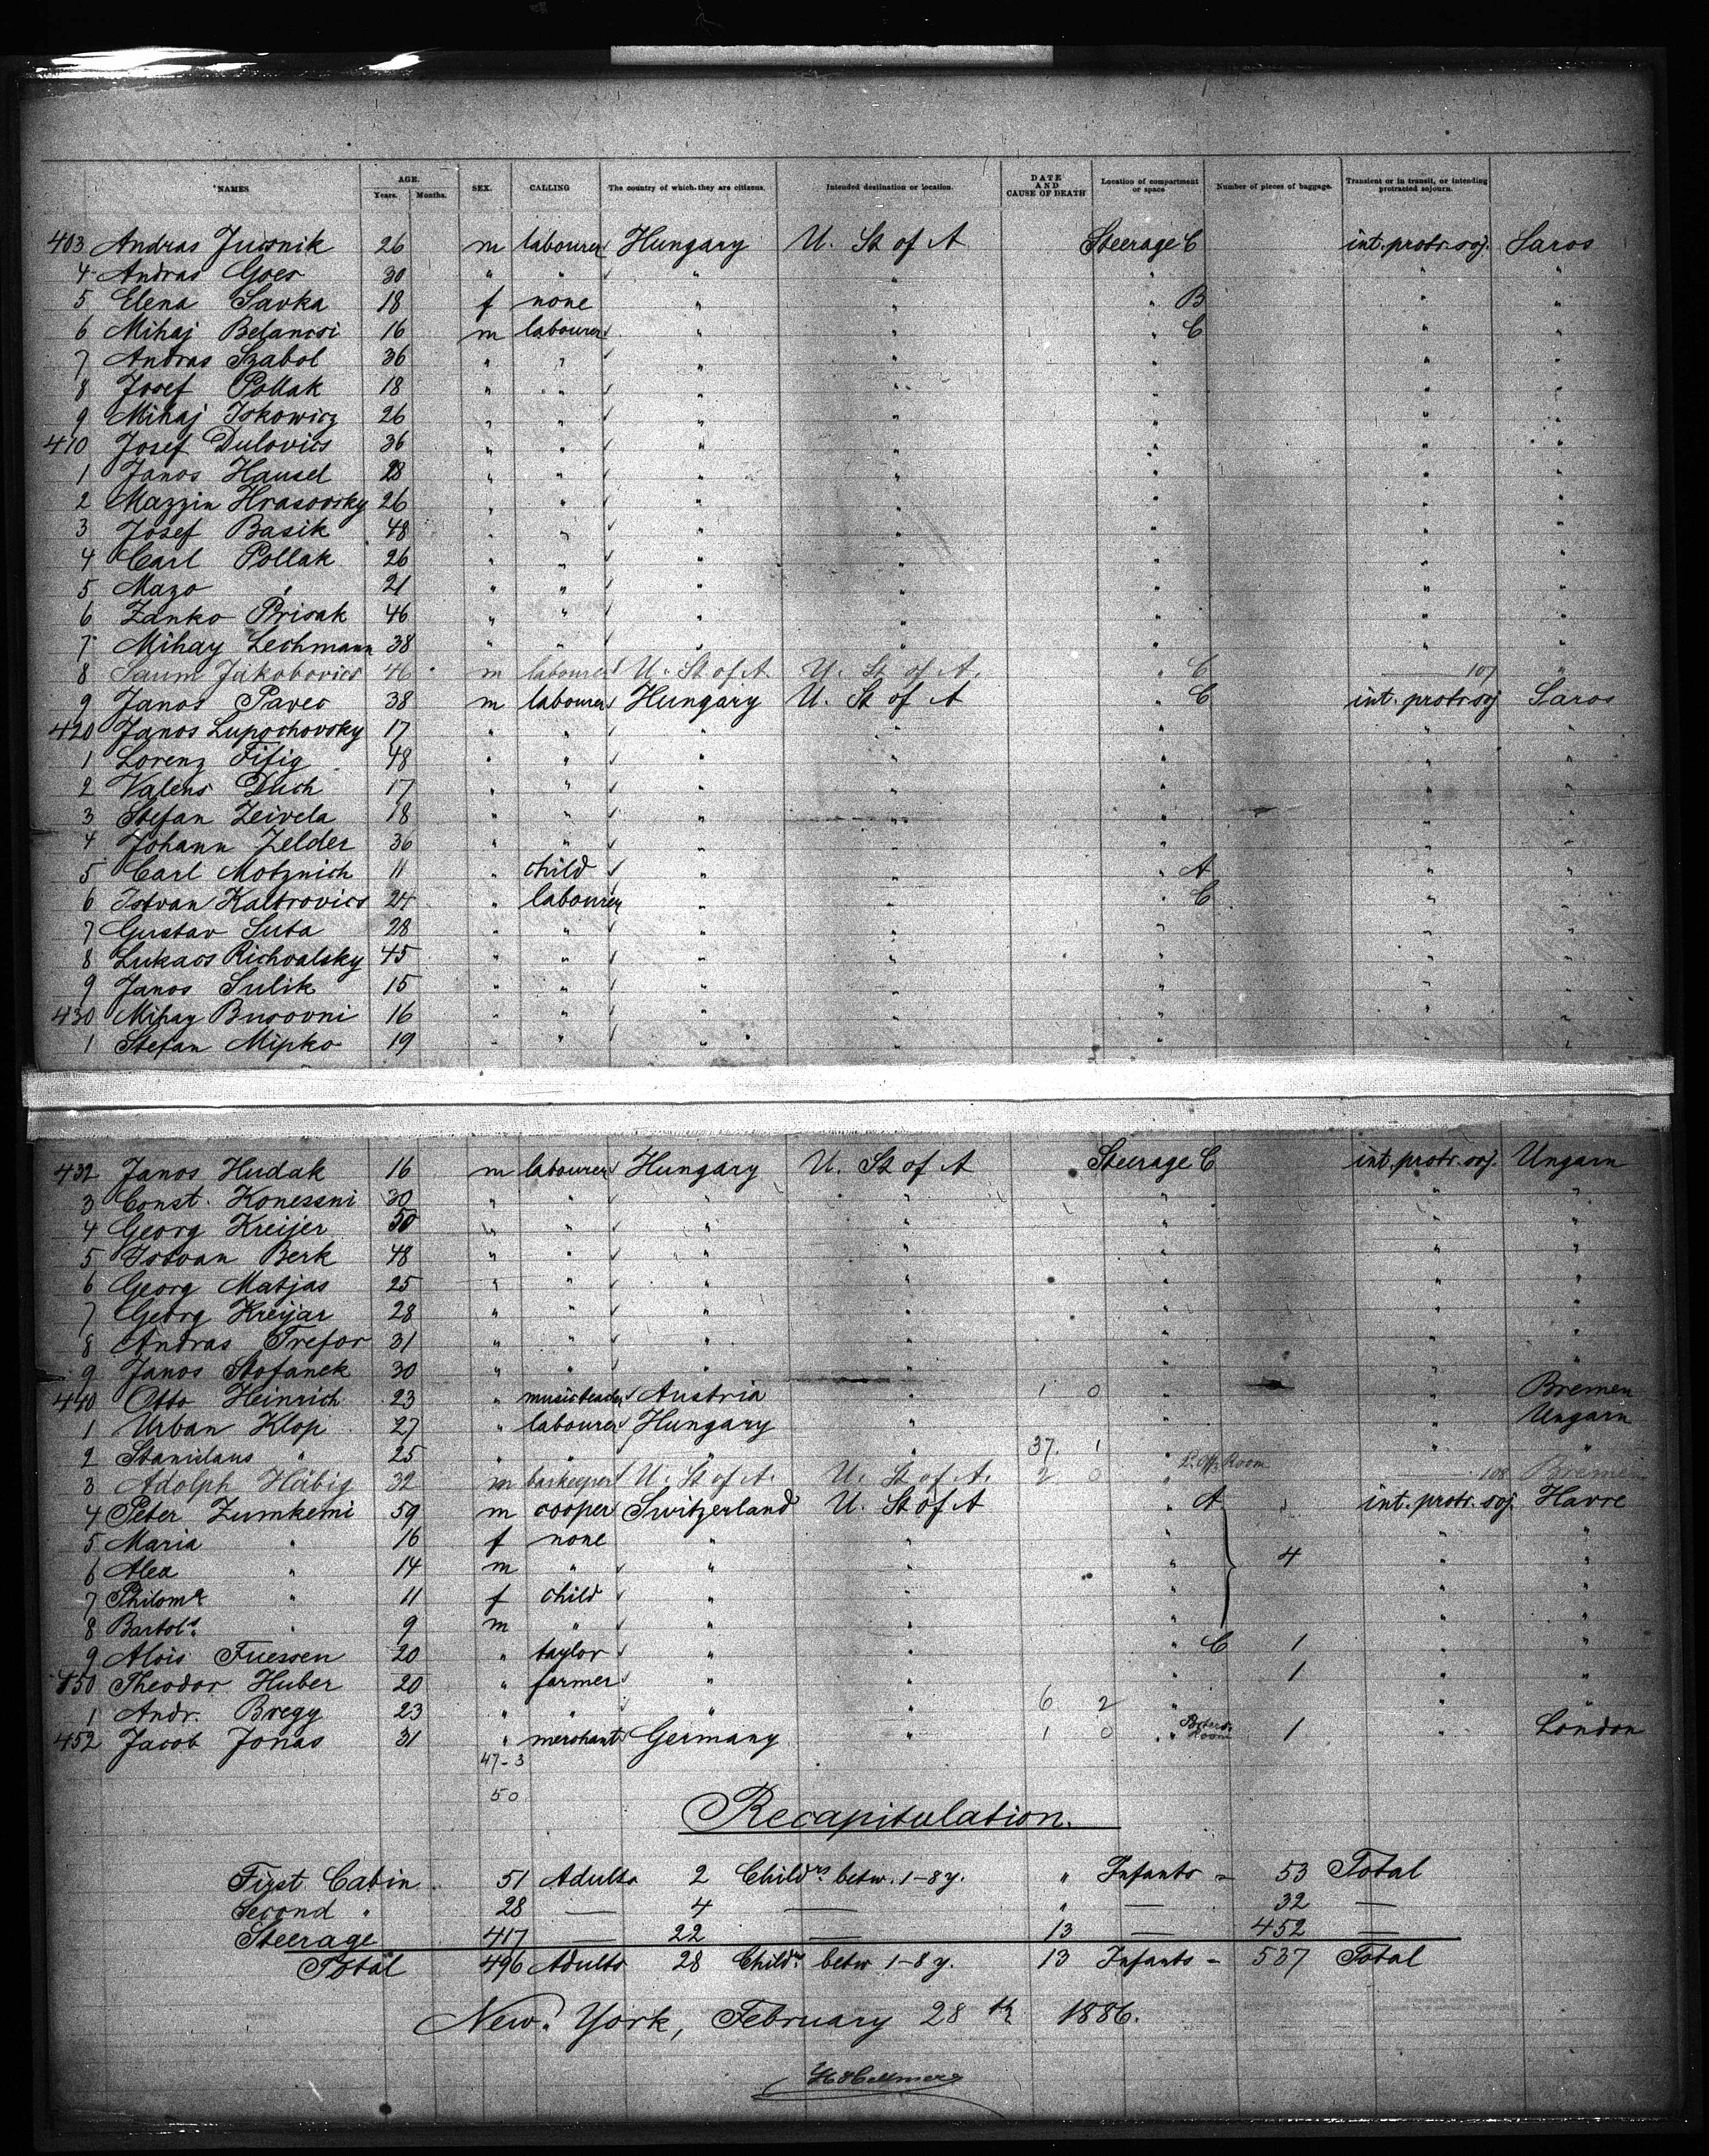 NAMES AGE. Years. Months. SEX. CALLING The country of which they are citizens. Intended destination or location. DATE AND CAUSE OF DEATH Location of compartment or space Number of pieces of baggage. Transient or in transit, or intending protracted sojourn.
403 Andras Jucsnik 26 m labourer Hungary U. St of A Steerage C int. protr. soj. Saros
4 Andras Goes 30 " " " " " " "
5 Elena Savka 18 f none " " " B " "
6 Mihaj Belancsi 16 m labourer " " " C " "
7 Andras Szabol 36 " " " " " " "
8 Josef Pollak 18 " " " " " " "
9 Mihaj Iskowicz 26 " " " " " " "
410 Josef Dulovics 36 " " " " " " "
1 Janos Hausel 28 " " " " " " "
2 Mazzin Hrasovsky 26 " " " " " " "
3 Josef Basik 48 " " " " " " "
4 Carl Pollak 26 " " " " " " "
5 Mazo " 21 " " " " " " "
6 Zanko Prisak 46 " " " " " " "
7 Mihay Lechmann 38 " " " " " " "
8 Saum Jakobovics 46 m labourer U. St of A. U. St of A. " C 107 "
9 Janos Pavec 38 m labourer Hungary U. St of A " C int. protr. soj Saros
420 Janos Lupochovsky 17 " " " " " " "
1 Lorenz Fifig 48 " " " " " " "
2 Valens Duch 17 " " " " " " "
3 Stefan Zeivela 18 " " " " " " "
4 Johann Zelder 36 " " " " " " "
5 Carl Motznich 11 " child " " " A " "
6 Istvan Kaltrovics 24 " labourer " " " C " "
7 Gustav Suta 28 " " " " " " "
8 Lukacs Richvalsky 45 " " " " " " "
9 Janos Sulik 15 " " " " " " "
430 Mihay Busovni 16 " " " " " " "
1 Stefan Mipko 19 " " " " " " "
432 Janos Hudak 16 m labourer Hungary U. St of A Steerage C int. protr. soj. Ungarn
3 Const. Konessni 30 " " " " " " "
4 Georg Kreijer 50 " " " " " " "
5 Istvan Berk 48 " " " " " " "
6 Georg Matjas 25 " " " " " " "
7 Georg Kreijar 28 " " " " " " "
8 Andras Trefor 31 " " " " " " "
9 Janos Stofanek 30 " " " " " " "
440 Otto Heinrich 23 " musicteacher Austria " 1 0 " " Bremen
1 Urban Klop 27 " labourer Hungary " " " Ungarn
2 Stanislaus " 25 " " " " 37. 1 " " "
3 Adolph Häbig 32 m barkeeper U. St of A. U. St of A. 2 0 " Room 108 Bremen
4 Peter Zumkemi 59 m cooper Switzerland U. St of A " A int. protr. soj. Havre
5 Maria " 16 f none " " " " "
6 Alex " 14 m " " " " 4 " "
7 Philoma " 11 f child " " " " "
8 Bartol. " 9 m " " " " " "
9 Alois Fuessen 20 " taylor " " " C 1 " "
450 Theodor Huber 20 " farmer " " " 1 " "
1 Andr. Bregy 23 " " " " 6 2 " " "
452 Jacob Jonas 31 " merchant Germany " 1 0 " Room 1 " London
47-3
50
Recapitulation.
First Cabin 51 Adults 2 Childrs betw. 1-8 y. " Infants = 53 Total
Second " 28 — 4 — " — 32 —
Steerage 417 — 22 — 13 — 452 —
Total 496 Adults 28 Childr betw 1-8 y. 13 Infants = 537 Total
New. York, February 28th 1886.